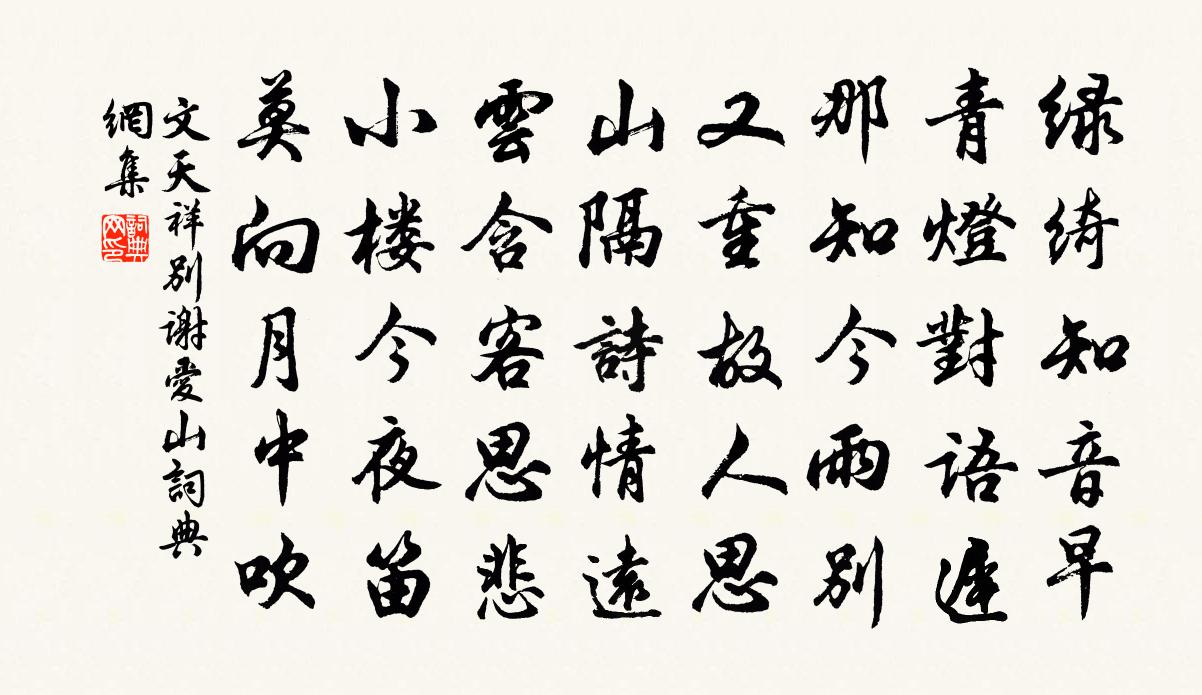 绿绮知音早
青燈對語遲
那知今雨別
又重故人思
山隔詩情遠
雲含客思悲
小楼今夜笛
莫向月中吹
文天祥別謝愛山詞典
網集
詞典
网印